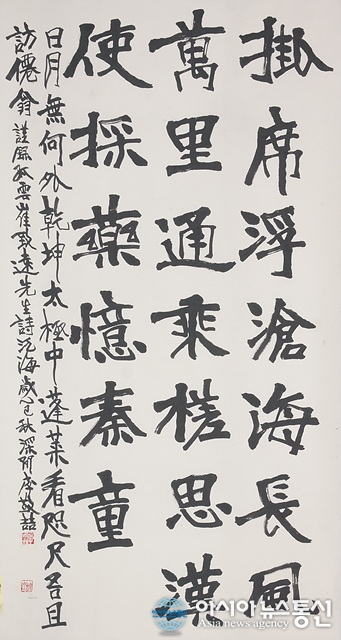 掛席浮滄海長風
萬里通乘槎思漢
使採藥憶秦童
日月無何外乾坤太極中蓬萊看咫尺吾且
訪僊翁 謹錄孤雲崔致遠先生詩泛海 歲 秋深
아시아뉴스통신
Asia news agency